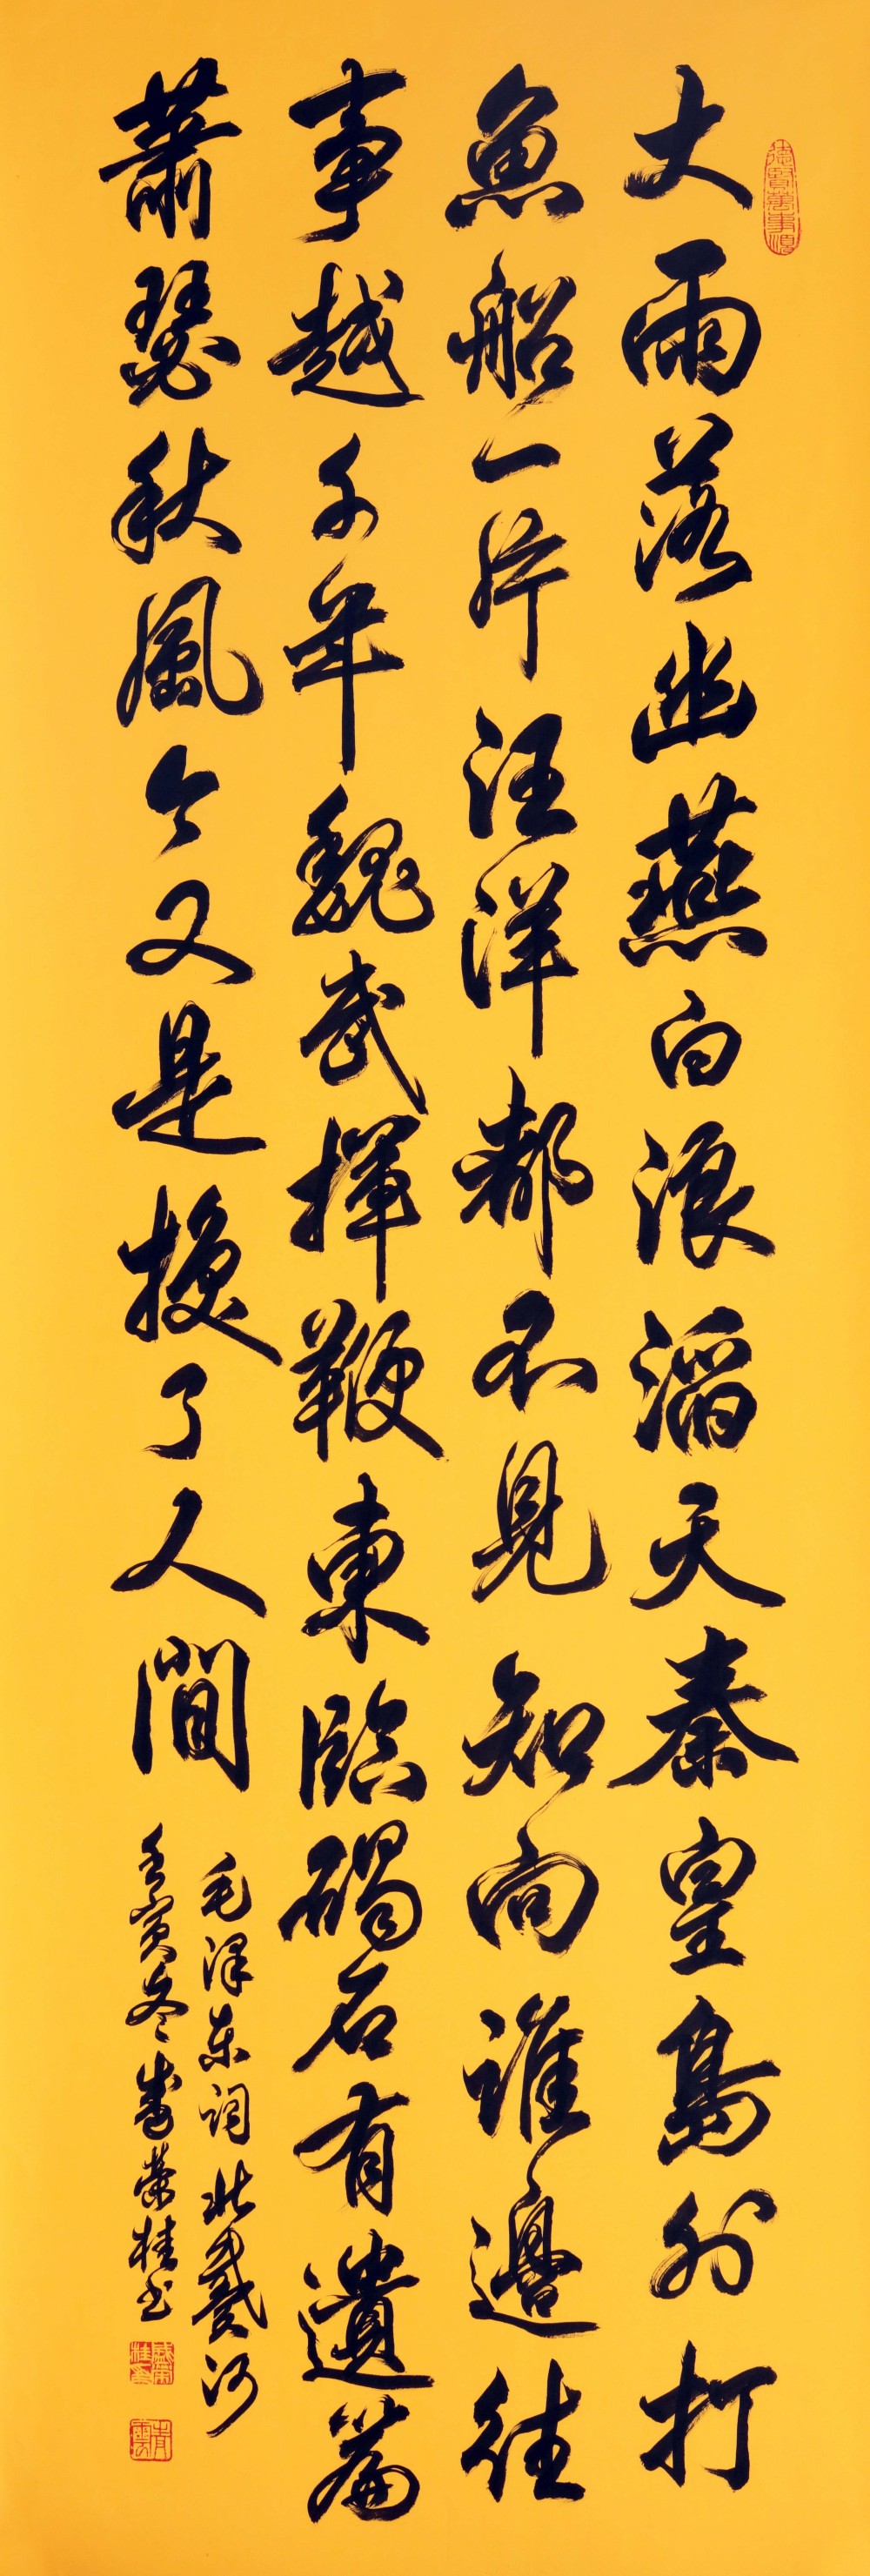 大雨落幽燕白浪滔天秦皇島外打
魚船一片汪洋都不見知向誰邊往
事越千年魏武揮鞭東臨碣石有遺篇
蕭瑟秋風今又是換了人間
毛泽东词北戴河
壬寅冬盛荣桂书